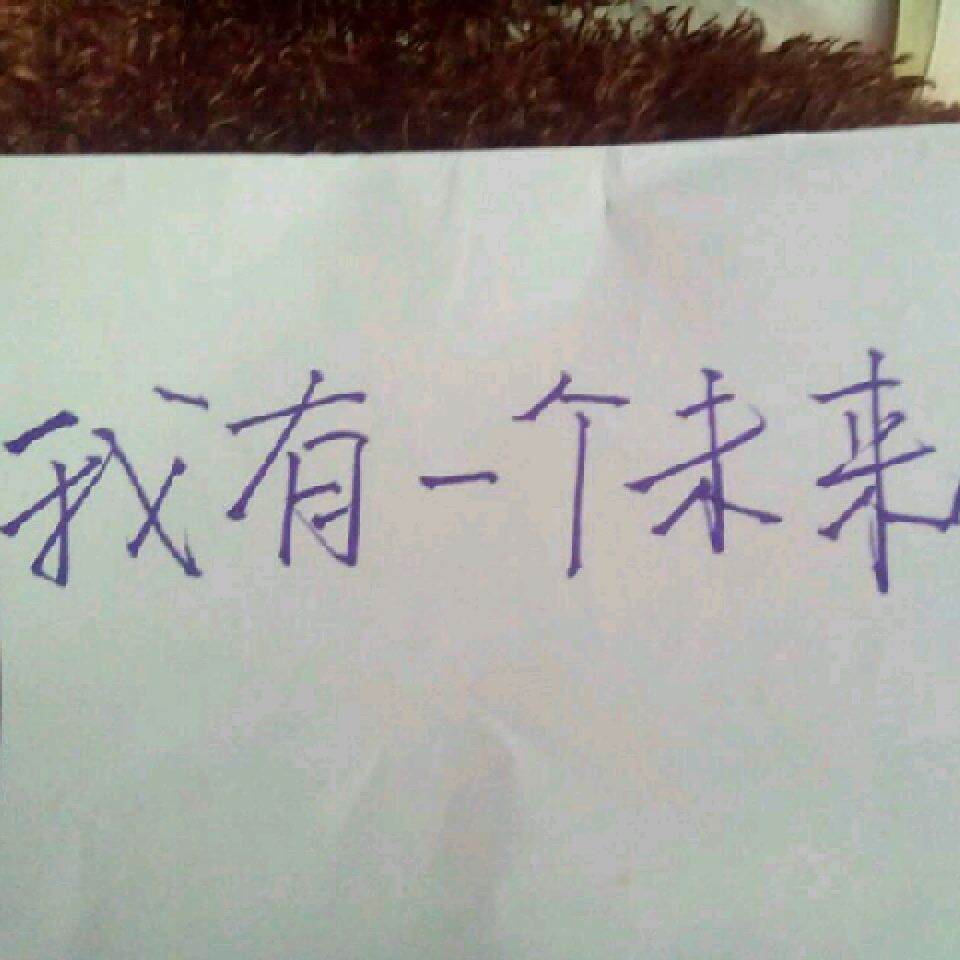 我有一个未来